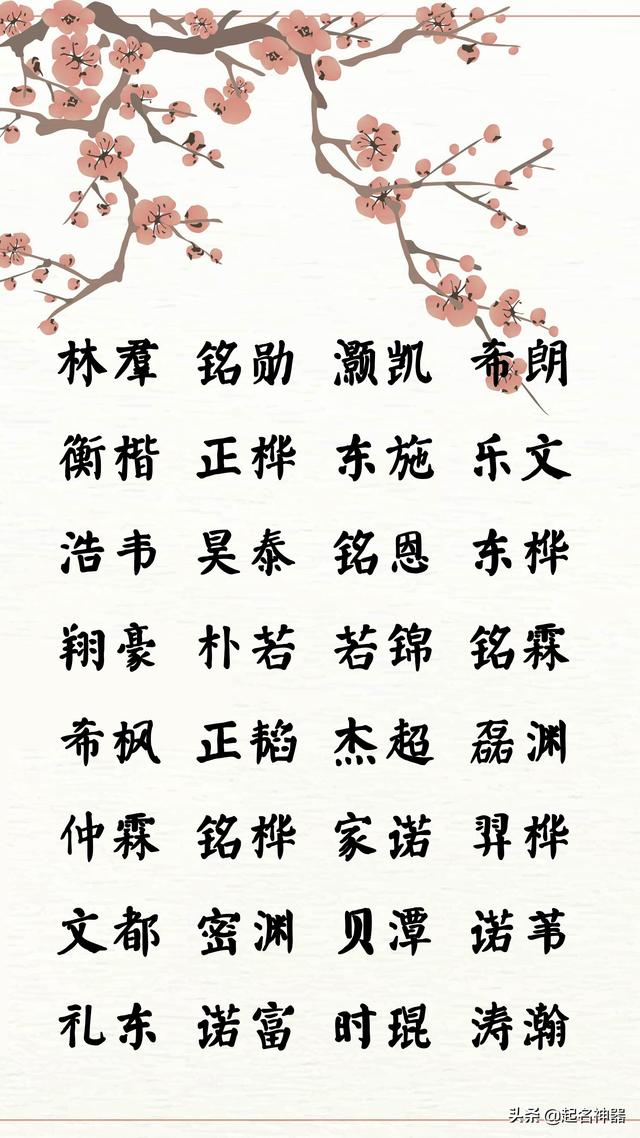 林羣 铭勋 灏凯 希朗
衡楷 正桦 东施 乐文
浩韦 昊泰 铭恩 东桦
翔豪 朴若 若锦 铭霖
希枫 正韬 杰超 磊渊
仲霖 铭桦 家诺 羿桦
文都 密渊 贝潭 诺苇
礼东 诺富 时琨 涛瀚
头条 @起名神器